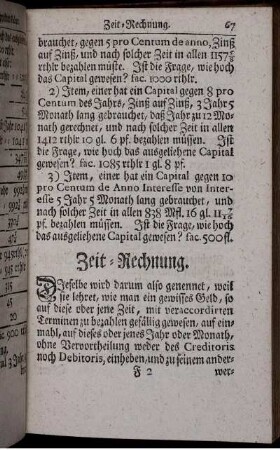 Zeit-Rechnung. 67
brauchet, gegen 5 pro Centum de anno, Zinß
auf Zinß, und nach solcher Zeit in allen 1157⅝
rthlr bezahlen muste. Ist die Frage, wie hoch
das Capital gewesen? fac. 1000 rthlr.
2) Item, einer hat ein Capital gegen 8 pro
Centum des Jahrs, Zinß auf Zinß, 3 Jahr 5
Monath lang gebrauchet, daß Jahr zu 12 Mo-
nath gerechnet, und nach solcher Zeit in allen
1412 rthlr 10 gl. 6 pf. bezahlen müssen. Ist
die Frage, wie hoch das ausgeliehene Capital
gewesen? fac. 1085 rthlr 1 gl. 8 pf.
3) Item, einer hat ein Capital gegen 10
pro Centum de Anno Interesse von Inter-
esse 5 Jahr 5 Monath lang gebrauchet, und
nach solcher Zeit in allen 838 Mfl. 16 gl.
pf. bezahlen müssen. Ist die Frage, wie hoch
das ausgeliehene Capital gewesen? fac. 500 fl.
Zeit-Rechnung.
DIeselbe wird darum also genennet, weil
sie lehret, wie man ein gewisses Geld, so
auf diese oder jene Zeit, mit veraccordirten
Terminen zu bezahlen gefällig gewesen, auf ein-
mahl, auf dieses oder jenes Jahr oder Monath,
ohne Vervortheilung weder des Creditoris
noch Debitoris, einheben, und zu seinem ander-
F 2 wer-